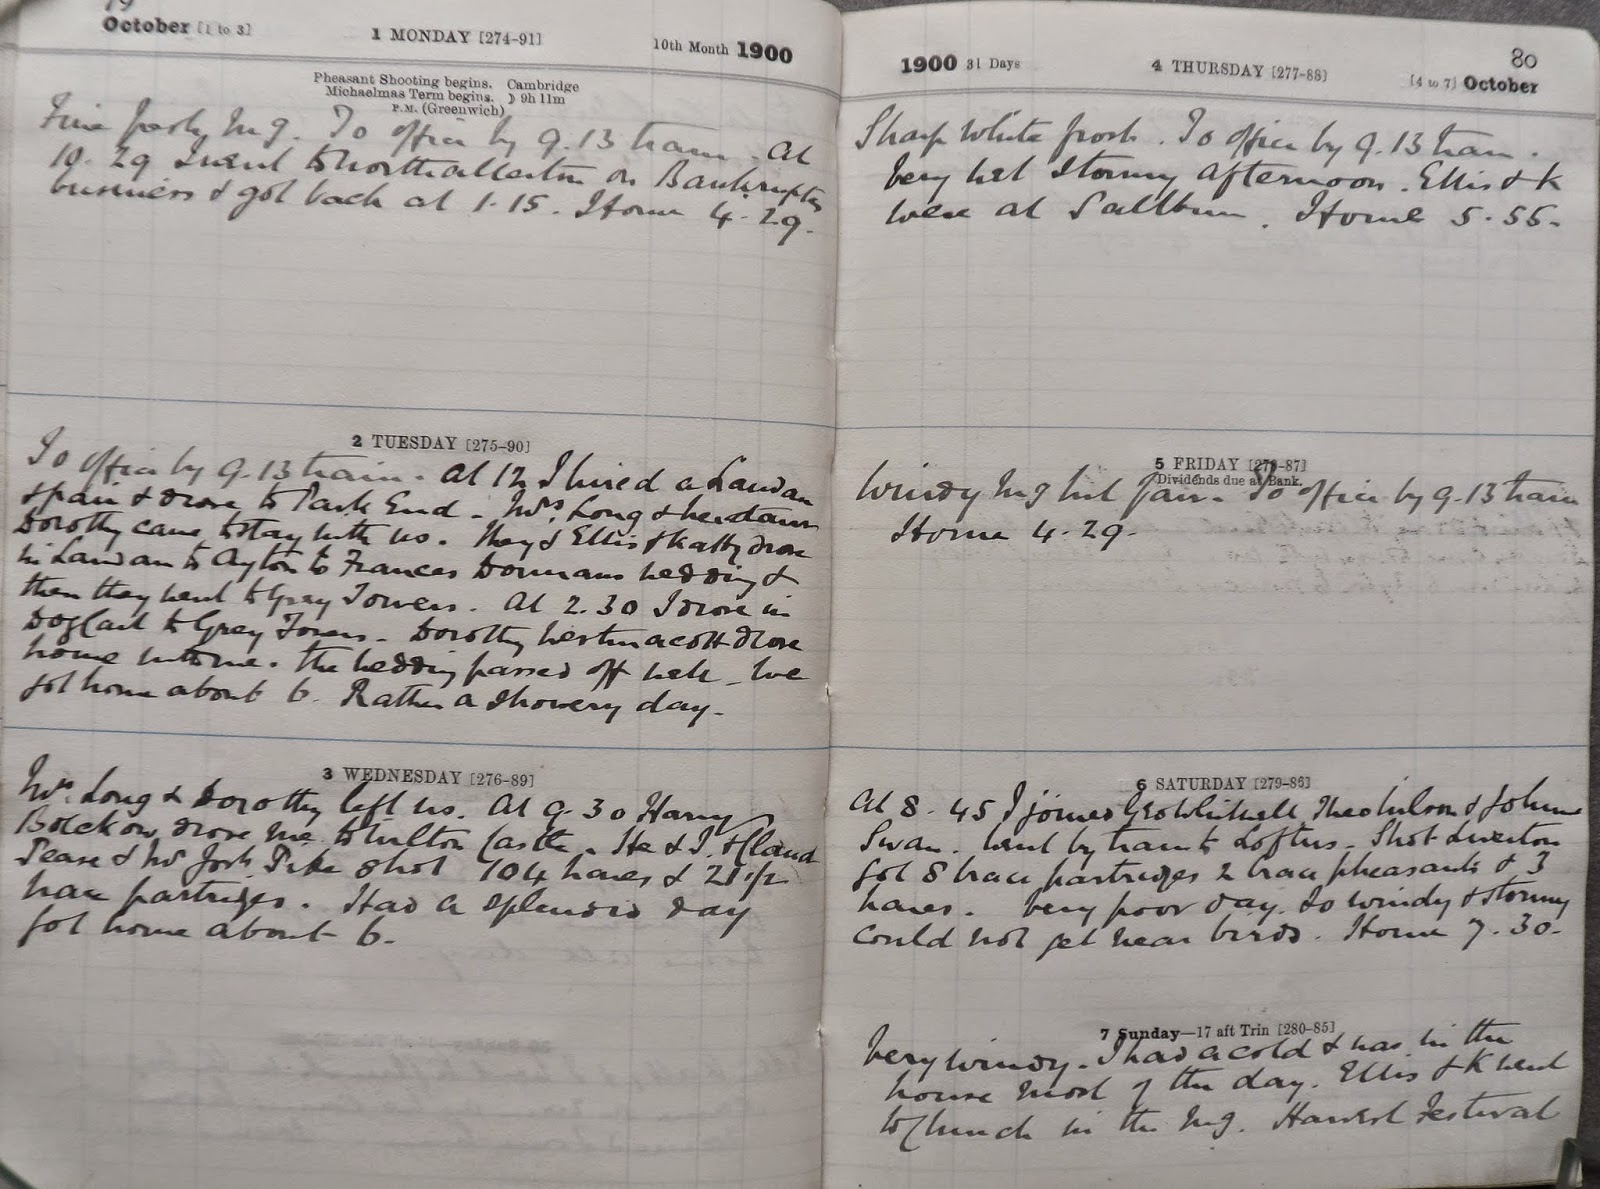 79
October [1 to 3] 1 MONDAY [274-91] 10th Month 1900
Pheasant Shooting begins. Cambridge
Michaelmas Term begins. ☽ 9h 11m
P.M. (Greenwich)
Fine Mg. To office by 9.13 train. At
10.29 I went to Northallerton on Bankruptcy
business & got back at 1.15. Home 4.29.
2 TUESDAY [275-90]
To office by 9.13 train. At 12 I hired a Landau
& pair & drove to Park End. Mrs. Long &
Dorothy came to stay with us. They & Ellis & Kathy drove
in Landau to Ayton to Frances Dormans wedding &
then they went to Grey Towers. At 2.30 I drove in
Dog Cart to Grey Towers. Dorothy Westmacott drove
home with me. The wedding passed off well. We
got home about 6. Rather a showery day.
3 WEDNESDAY [276-89]
Mrs. Long & Dorothy left us. At 9.30 Harry
Bolckow drove me to Wilton Castle. He & I. & Claud
Pease & Mr Jos. Pike shot 104 hares & 21 1/2
brace partridges. Had a splendid day
got home about 6.
80
1900 31 Days 4 THURSDAY [277-88] [4 to 7] October
Sharp White frost. To office by 9.13 train.
Very wet Stormy afternoon. Ellis & K
were at Saltburn. Home 5.55.
5 FRIDAY [278-87]
Dividends due at Bank.
Windy Mg but fair. To office by 9.13 train
Home 4.29.
6 SATURDAY [279-86]
At 8.45 I joined Geo Whitwell, Theo Wilson & Johnie
Swan. Went by train to Loftus. Shot
got 8 brace partridges 2 brace pheasants & 3
hares. Very poor day. So windy & stormy
could not get near birds. Home 7.30.
7 Sunday—17 aft Trin [280-85]
Very windy. I had a cold & was in the
house most of the day. Ellis & K went
to Church in the Mg. Harvest Festival